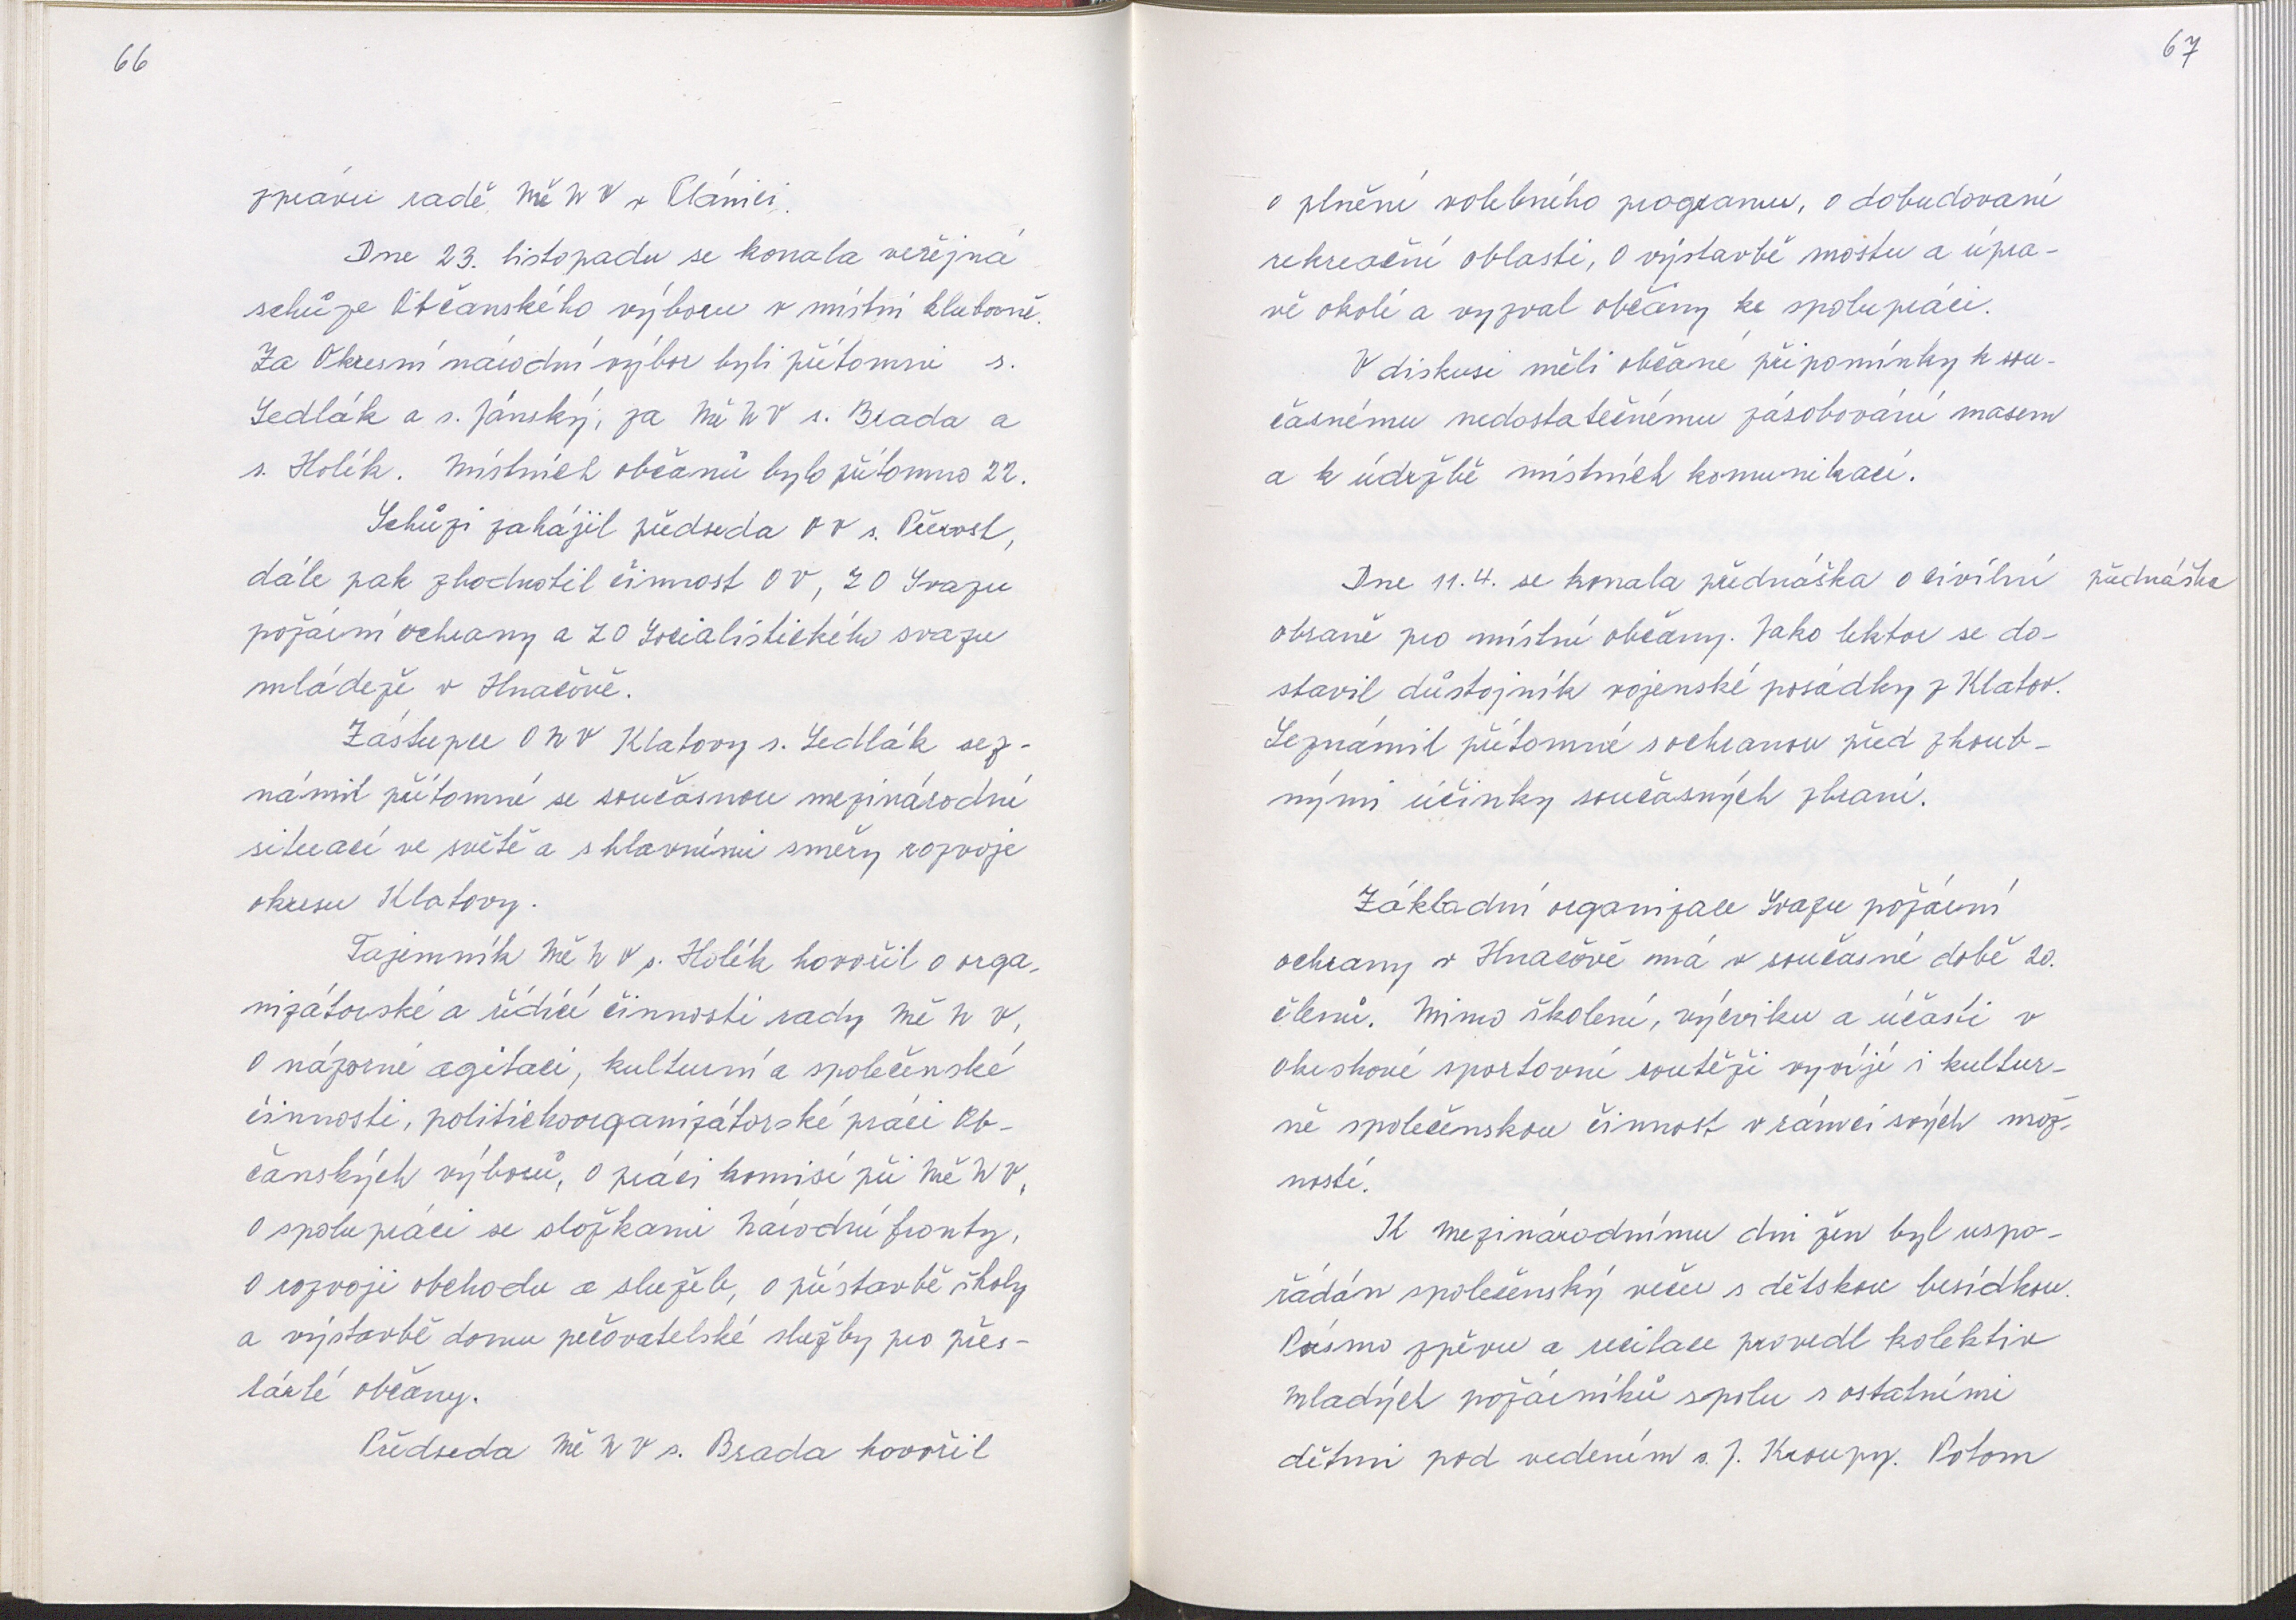 66
zprávu radě Mě N V v Plánici.
Dne 23. listopadu se konala veřejná
schůze Občanského výboru v místní klubovně.
Za Okresní národní výbor byli přítomni s.
Sedlák a s. Jánský, za Mě N V s. Brada a
s. Holík. Místních občanů bylo přítomno 22.
Schůzi zahájil předseda O V s. Přerost,
dále pak zhodnotil činnost O V, Z O Svazu
požární ochrany a Z O Socialistického svazu
mládeže v Hnačově.
Zástupce O N V Klatovy s. Sedlák sez-
námil přítomné se současnou mezinárodní
situací ve světě a s hlavními směry rozvoje
okresu Klatovy.
Tajemník Mě N V s. Holík hovořil o orga-
nizátorské a řídící činnosti rady Mě N V,
o názorné agitaci, kulturní a společenské
činnosti, politickoorganizátorské práci Ob-
čanských výborů, o práci komisí při Mě N V,
o spolupráci se složkami Národní fronty,
o rozvoji obchodu a služeb, o přístavbě školy
a výstavbě domu pečovatelské služby pro přes-
tárlé občany.
Předseda Mě N V s. Brada hovořil
67
o plnění volebního programu, o dobudování
rekreační oblasti, o výstavbě mostu a úpra-
vě okolí a vyzval občany ke spolupráci.
V diskusi měli občané připomínky k sou-
časnému nedostatečnému zásobování masem
a k údržbě místních komunikací.
Dne 11. 4. se konala přednáška o civilní přednáška
obraně pro místní občany. Jako lektor se do-
stavil důstojník vojenské posádky z Klatov.
Seznámil přítomné s ochranou před zhoub-
nými účinky současných zbraní.
Základní organizace Svazu požární
ochrany v Hnačově má v současné době 20.
členů. Mimo školení, výcviku a účasti v
okrskové sportovní soutěži vyvíjí i kultur-
ně společenskou činnost v rámci svých mož-
ností.
K mezinárodnímu dni žen byl uspo-
řádán společenský večer s dětskou besídkou.
Pásmo zpěvu a recitace provedl kolektiv
mladých požárníků spolu s ostatními
dětmi pod vedením s. J. Kroupy. Potom